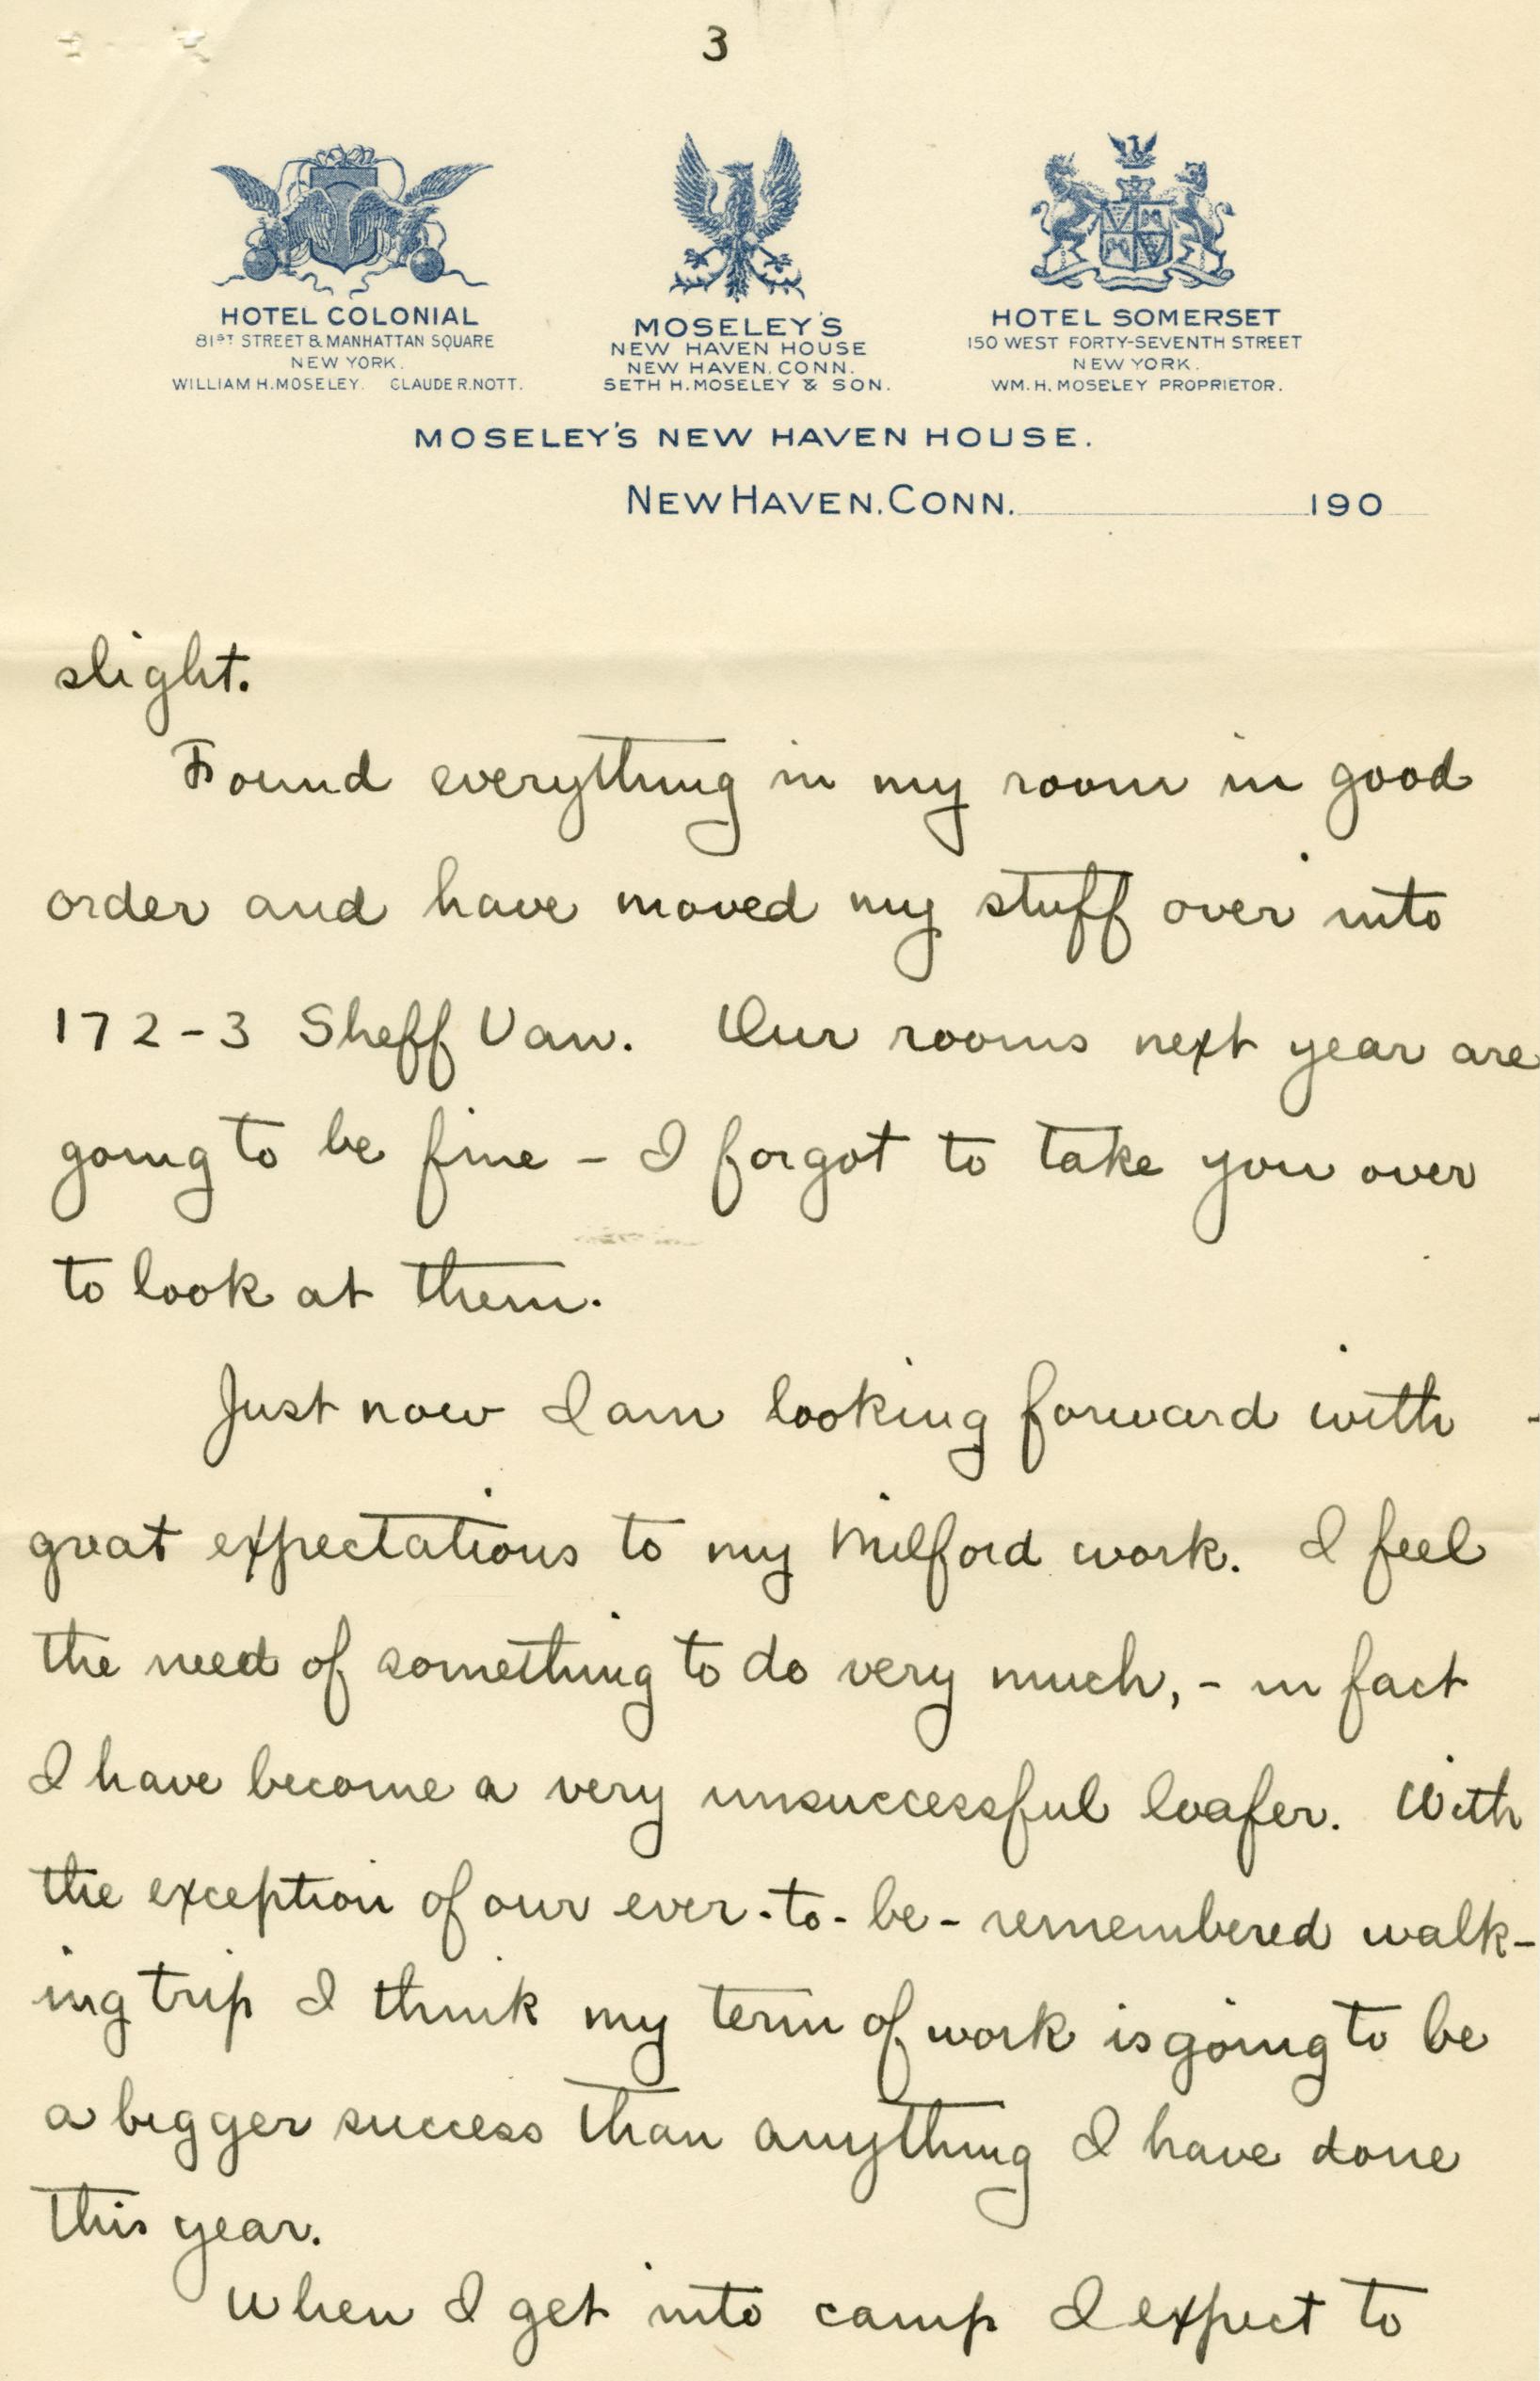 3
HOTEL COLONIAL
81ST STREET & MANHATTAN SQUARE
NEW YORK.
WILLIAM H. MOSELEY. CLAUDE R. NOTT.
MOSELEY'S
NEW HAVEN HOUSE
NEW HAVEN, CONN.
SETH H. MOSELEY & SON.
HOTEL SOMERSET
150 WEST FORTY-SEVENTH STREET
NEW YORK.
WM. H. MOSELEY PROPRIETOR.
MOSELEY'S NEW HAVEN HOUSE.
NEW HAVEN, CONN. 190
slight.
Found everything in my room in good
order and have moved my stuff over into
172-3 Sheff Van. Our rooms next year are
going to be fine - I forgot to take you over
to look at them.
Just now I am looking forward with
great expectations to my Milford work. I feel
the need of something to do very much, - in fact
I have become a very unsuccessful loafer. With
the exception of our ever-to-be-remembered walk-
ing trip I think my term of work is going to be
a bigger success than anything I have done
this year.
When I get into camp I expect to